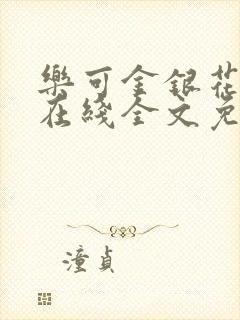 樂可金銀花
在綫全文免
潼貞